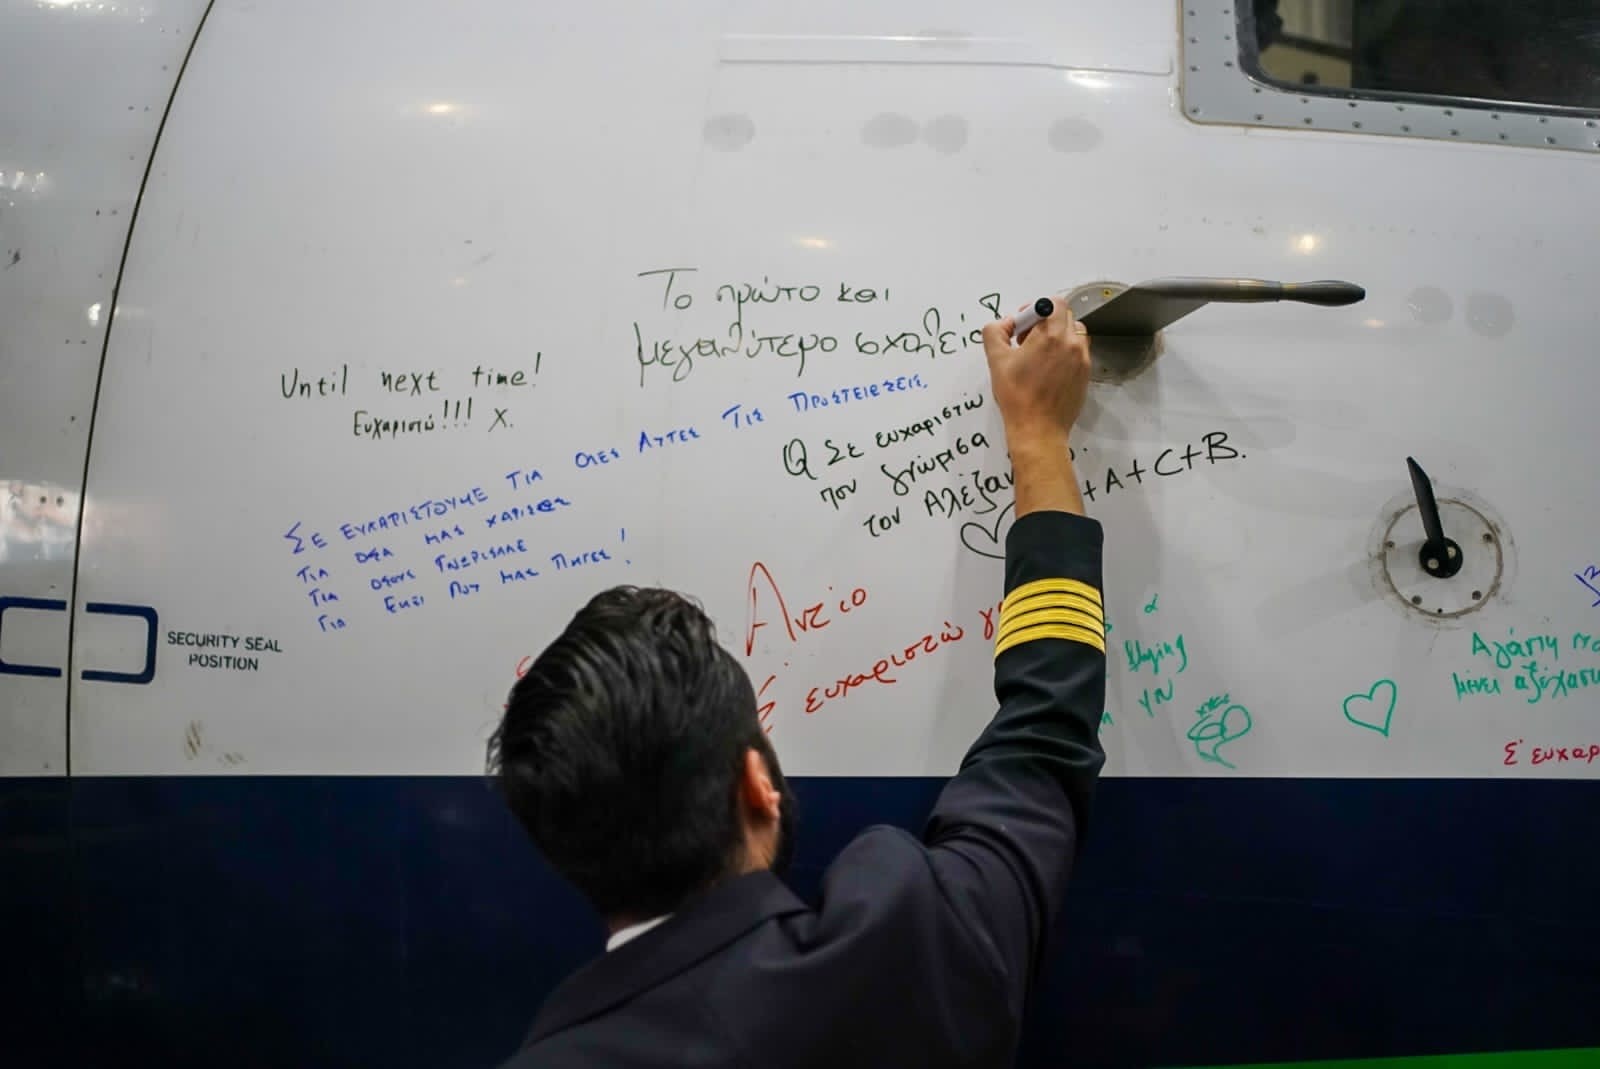 Το πρώτο και
μεγαλύτερο σχολείο!
Until next time!
Ευχαριστώ!!! X.
ΣΕ ΕΥΧΑΡΙΣΤΟΥΜΕ ΓΙΑ ΟΛΕΣ ΑΥΤΕΣ ΤΙΣ ΠΡΟΣΓΕΙΩΣΕΙΣ.
ΓΙΑ ΟΣΑ ΜΑΣ ΧΑΡΙΣΕΣ
ΓΙΑ ΟΣΟΥΣ ΓΝΩΡΙΣΑΜΕ
ΓΙΑ ΕΚΕΙ ΠΟΥ ΜΑΣ ΠΗΓΕΣ!
Σε ευχαριστώ
που γνώρισα
τον
+A+C+B.
SECURITY SEAL
POSITION
Αντίο
Σ' ευχαριστώ
Αγάπη
μένει
Σ' ευχαρ